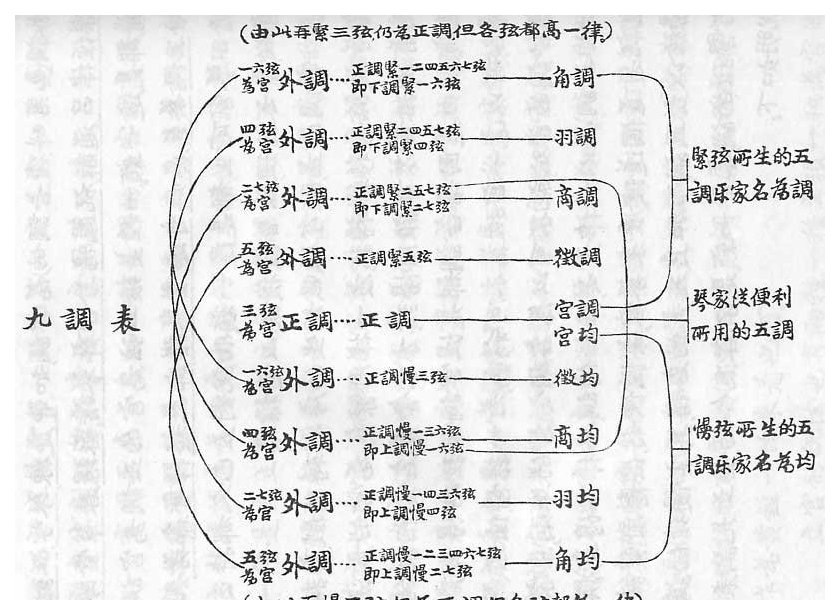 (由此再緊三弦仍為正調,但各弦都高一律)
一六弦
為宮 外調····正調緊一二四五六七弦
即下調緊一六弦 角調
四弦
為宮 外調····正調緊二四五七弦
即下調緊四弦 羽調
二七弦
為宮 外調····正調緊二五七弦
即下調緊二七弦 商調
五弦
為宮 外調····正調緊五弦 徵調
九調表
三弦
為宮 正調····正調 宮調
宮均
一六弦
為宮 外調····正調慢三弦 徵均
四弦
為宮 外調····正調慢一三六弦
即上調慢一六弦 商均
二七弦
為宮 外調····正調慢一四三六弦
即上調慢四弦 羽均
五弦
為宮 外調····正調慢一二三四六七弦
即上調慢二七弦 角均
緊弦所生的五
調乐家名為調
琴家從便利
所用的五調
慢弦所生的五
調乐家名為均